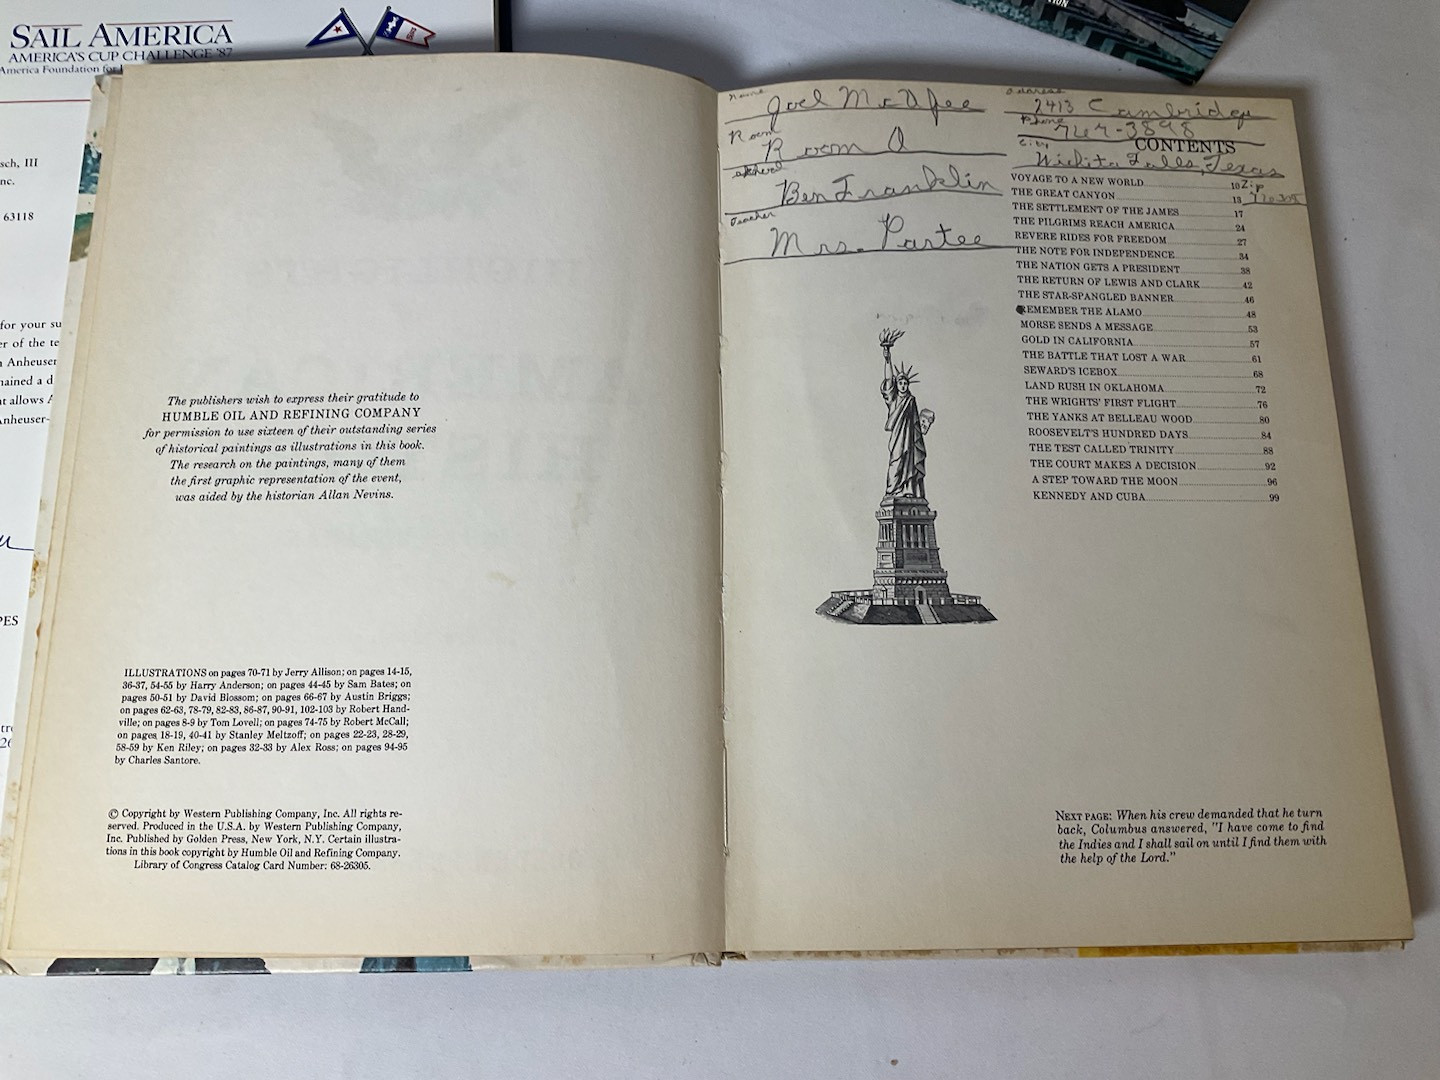 SAIL AMERICA
AMERICA'S CUP CHALLENGE '87
America Foundation for
sch, III
nc.
63118
for your su
er of the te
Anheuser
nained a d
t allows A
Anheuser-
PES
The publishers wish to express their gratitude to
HUMBLE OIL AND REFINING COMPANY
for permission to use sixteen of their outstanding series
of historical paintings as illustrations in this book.
The research on the paintings, many of them
the first graphic representation of the event,
was aided by the historian Allan Nevins.
ILLUSTRATIONS on pages 70-71 by Jerry Allison; on pages 14-15,
36-37, 54-55 by Harry Anderson; on pages 44-45 by Sam Bates; on
pages 50-51 by David Blossom; on pages 66-67 by Austin Briggs;
on pages 62-63, 78-79, 82-83, 86-87, 90-91, 102-103 by Robert Hand-
ville; on pages 8-9 by Tom Lovell; on pages 74-75 by Robert McCall;
on pages 18-19, 40-41 by Stanley Meltzoff; on pages 22-23, 28-29,
58-59 by Ken Riley; on pages 32-33 by Alex Ross; on pages 94-95
by Charles Santore.
© Copyright by Western Publishing Company, Inc. All rights re-
served. Produced in the U.S.A. by Western Publishing Company,
Inc. Published by Golden Press, New York, N.Y. Certain illustra-
tions in this book copyright by Humble Oil and Refining Company.
Library of Congress Catalog Card Number: 68-26305.
Name Joel McAfee
Room Room A
school Ben Franklin
Teacher Mrs. Partee
address 2413 Cambridge
Phone 767-3898
City Wichita Falls, Texas
Zip
CONTENTS
VOYAGE TO A NEW WORLD 10
THE GREAT CANYON 13
THE SETTLEMENT OF THE JAMES 17
THE PILGRIMS REACH AMERICA 24
REVERE RIDES FOR FREEDOM 27
THE NOTE FOR INDEPENDENCE 34
THE NATION GETS A PRESIDENT 38
THE RETURN OF LEWIS AND CLARK 42
THE STAR-SPANGLED BANNER 46
REMEMBER THE ALAMO 48
MORSE SENDS A MESSAGE 53
GOLD IN CALIFORNIA 57
THE BATTLE THAT LOST A WAR 61
SEWARD'S ICEBOX 68
LAND RUSH IN OKLAHOMA 72
THE WRIGHTS' FIRST FLIGHT 76
THE YANKS AT BELLEAU WOOD 80
ROOSEVELT'S HUNDRED DAYS 84
THE TEST CALLED TRINITY 88
THE COURT MAKES A DECISION 92
A STEP TOWARD THE MOON 96
KENNEDY AND CUBA 99
NEXT PAGE: When his crew demanded that he turn
back, Columbus answered, "I have come to find
the Indies and I shall sail on until I find them with
the help of the Lord."